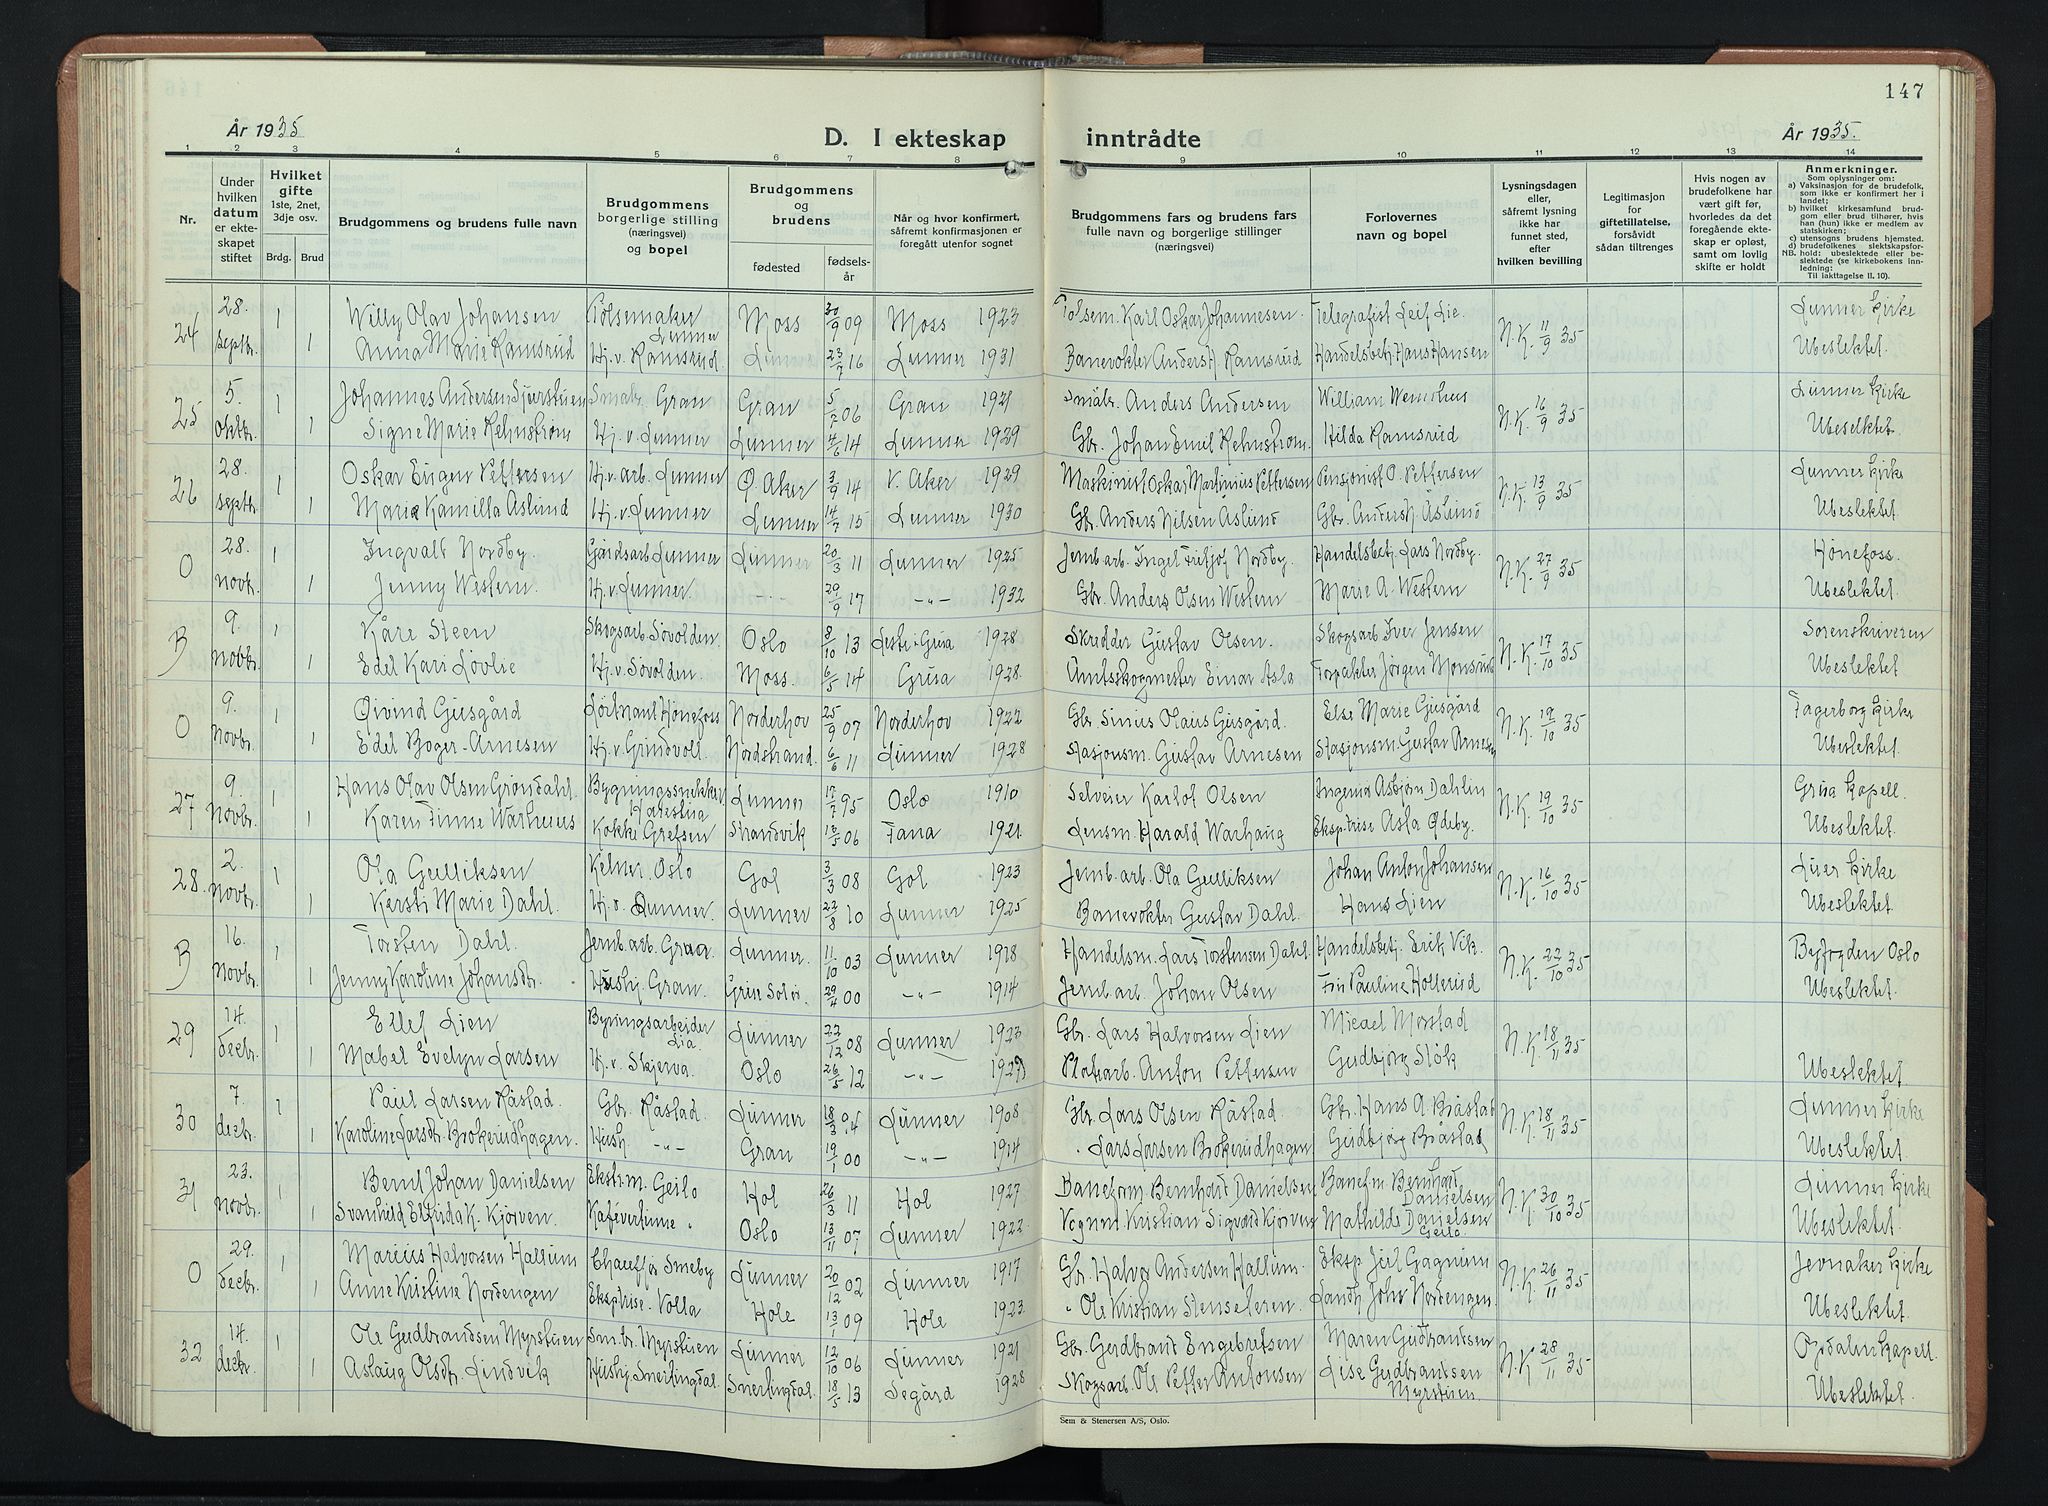 147
År 1935
D. I ekteskap inntrådte
År 1935.
1 2 3 4 5 6 7 8 9 10 11 12 13 14
Nr.
Under hvilken datum er ekteskapet stiftet
Hvilket gifte 1ste, 2net, 3dje osv.
Brdg. Brud
Brudgommens og brudens fulle navn
Brudgommens borgerlige stilling (næringsvei) og bopel
Brudgommens og brudens
fødested fødselsår
Når og hvor konfirmert, såfremt konfirmasjonen er foregått utenfor sognet
Brudgommens fars og brudens fars fulle navn og borgerlige stillinger (næringsvei)
Forlovernes navn og bopel
Lysningsdagen eller, såfremt lysning ikke har funnet sted, efter hvilken bevilling
Legitimasjon for giftetillatelse, forsåvidt sådan tiltrenges
Hvis nogen av brudefolkene har vært gift før, hvorledes da det foregående ekteskap er opløst, samt om lovlig skifte er holdt
Anmerkninger.
Som oplysninger om:
a) Vaksinasjon for de brudefolk, som ikke er konfirmert her i landet;
b) hvilket kirkesamfund brudgom eller brud tilhører, hvis han (hun) ikke er medlem av statskirken;
c) utensogns brudens hjemsted.
d) brudefolkenes slektskapsforhold: ubeslektede eller beslektede (se kirkebokens innledning:
NB.
Til iakttagelse II. 10).
24 28. septbr. 1 Willy Olav Johansen Pölsemaker Lunner Moss 30/9 09 Moss 1923 Pölsem. Karl Oskar Johannesen. Telegrafist Leif Lie. N.K. 11/9 35 Lunner kirke
1 Anna Marie Ramsrud Hj.v. Ramsrud. Lunner 23/7 16 Lunner 1931 Banevokter Anders H. Ramsrud Handelsbetj. Hans Hansen Ubeslektet.
25 5. oktbr. 1 Johannes Andersen Sjurstuen Småbr. Gran Gran 5/7 06 Gran 1921 Småbr. Anders Andersen William N.K. 16/9 35 Lunner kirke
1 Signe Marie Rehnström Hj.v. Lunner Lunner 4/6 14 Lunner 1929 Gbr. Johan Emil Rehnström. Hilda Ramsrud Ubeselktet.
26 28 septbr. 1 Oskar Eugen Pettersen Hj.v. arb. Lunner Ø. Aker 3/9 14 V. Aker 1929 Maskinist Oskar Martinius Pettersen Pensjonist O. Pettersen N.K. 13/9 35 Lunner kirke
1 Marie Kamilla Åslund Hj.v. Lunner Lunner 14/7 15 Lunner 1930 Gbr. Anders Nilsen Åslund Gbr. Anders N. Åslund Ubeslektet
O 28. novbr. 1 Ingvalt Nordby Gårdsarb. Lunner Lunner 20/3 11 Lunner 1925 Jernb.arb. Ingel Fritjof Nordby. Handelsbetj. Lars Nordby. N.K. 27/9 35 Hönefoss.
1 Jenny Western. Hj.v. Lunner. -"- 29/9 17 -"- 1932 Gbr. Anders Olsen Western Marie A. Western Ubeslektet.
B 9. novbr. 1 Kåre Steen Skogsarb. Sövolden. Oslo 8/10 13 1928 Skredder Gustav Olsen. Skogsarb. Iver Jensen N.K. 17/10 35 Sorenskriveren
1 Edel Kari Lövlie Hj.v. Sövolden. Moss. 6/5 14 Grua 1928. Amtsskogmester Einar Asla Forpakter Jörgen Monsrud Ubeslektet
O 9. Novbr. 1 Öivind Gusgård Löitnant Hönefoss Norderhov 25/9 07 Norderhov 1922 Gbr. Sinius Olaus Gusgård. Else Marie Gusgård N.K. 19/10 35 Fagerborg kirke
1 Edel Boger-Arnesen Hj.v. Grindvoll. Nordstrand. 6/6 11 Lunner 1928 Stasjonsm. Gustav Arnesen Stasjonsm. Gustav Arnesen Ubeslektet.
27 9. novbr. 1 Hans Olav Olsen Gröndahl. Bygningssnekker Harestua Lunner 17/7 95 Oslo 1910 Selveier Karlot Olsen Ingeniör Asbjörn Dahlin N.K. 19/10 35 Grua kapell.
1 Karen Finne Warhuus Kokke Grefsen Strandvik 18/5 06 Fana 1921. Lensm. Harald Warhaug Eksp.trise Asla Ödeby. Ubeslektet.
28. 2. novbr. 1 Ola Gulliksen Kelner. Oslo Gol 3/3 08 Gol 1923 Jernb.arb. Ola Gulliksen Johan Anton Johansen N.K. 16/10 35 Luer kirke
1 Kersti Marie Dahl. Hj.v. Lunner. Lunner 22/8 10 Lunner 1925 Banevokter Gustav Dahl. Hans Lien Ubeslektet.
B 16. novbr. 1 Torsten Dahl. Jernb.arb. Grua Lunner. 11/10 03 Lunner 1918 Handelsm. Lars Torstensen Dahl. Handelsbetj. Erik Vik. N.K. 22/10 35 Byfogden Oslo
1 Jenny Karoline Johansdtr. Hushj. Gran. Grue Solör. 29/4 00 -"- 1914 Jernb.arb. Johan Olsen Fru Pauline Hollerud Ubeslektet.
29 14. decbr. 1 Ellef Lien Bygningsarbeider Lia. Lunner 22/12 08 Lunner 1923 Gbr. Lars Halvorsen Lien Micael Morstad N.K. 18/11 35
1 Mabel Evelyn Larsen Hj.v. Skjerva. Oslo 26/5 12 -"- 1927 Anton Pettersen Gudbjörg Slåk Ubeslektet
30 7. decbr. 1 Paul Larsen Råstad. Gbr. Råstad. Lunner 18/3 94 Lunner 1908 Gbr. Lars Olsen Råstad Gbr. Hans A. Bråstad N.K. 18/11 35 Lunner kirke
1 Karoline Larsdtr. Brökerudhagen. Hush. -"- Gran 19/1 00 -"- 1914 " Lars Larsen Brökerudhagen Gudbjörg Bråstad Ubeslektet.
31 23. novbr. 1 Bernt Johan Danielsen Ekstr.m. Geilo Hol 26/3 11 Hol 1927 Baneform. Bernhard Danielsen Banefm. Bernhard Danielsen N.K. 30/10 35 Lunner kirke
1 Svanhild Elfrida K. Kjörven. Kafévertinne " Oslo 13/11 07 Lunner 1922 Vognm. Kristian Sigvald Kjörven Mathilde Danielsen Geilo. Ubeslektet.
O 29. decbr. 1 Marius Halvorsen Hallum Chauffør Smeby Lunner 20/12 02 Lunner 1917 Gb. Halvor Andersen Hallum. Eksp. Gagnum N.K. 26/11 35 Jevnaker kirke
1 Anne Kristine Nordengen Eksptrise. Volla Hole 13/1 09 Hole 1923. " Ole Kristian Stenseteren. Landh. Johs Nordengen. Ubeslektet.
32 14. decbr. 1 Ole Gudbrandsen Myrstuen Sm.br. Myrstuen Lunner 12/10 06 Lunner 1921 Gbr. Gudbrand Engebretsen Maren Gudbrandsen N.K. 28/11 35 Opdalen kapell.
1 Aslaug Olsdtr. Lindvik Hushj. Snertingdal. Snertingdal. 18/5 13 Segård 1928 Skogsarb. Ole Petter Antonsen Lise Gudbrandsen Myrstuen Ubeslektet.
Sem & Stenersen A/S, Oslo.